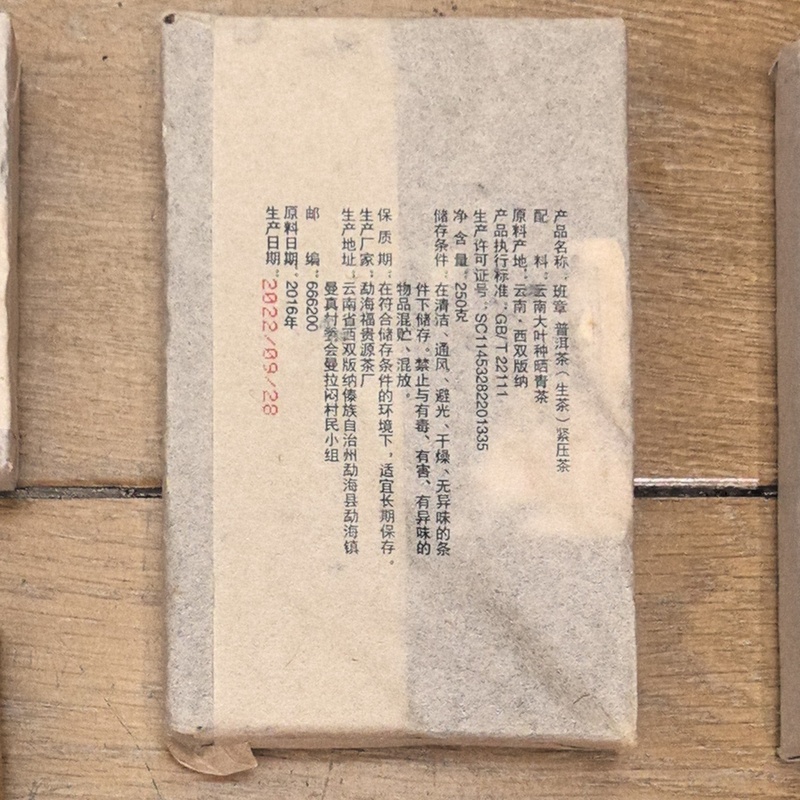 产品名称：班章 普洱茶（生茶）紧压茶
配 料：云南大叶种晒青茶
原料产地：云南·西双版纳
产品执行标准：GB/T 22111
生产许可证号：SC11453282201335
净 含 量：250克
储存条件：在清洁、通风、避光、干燥、无异味的条
件下储存。禁止与有毒、有害、有异味的
物品混贮、混放。
保 质 期：在符合储存条件的环境下，适宜长期保存。
生产厂家：勐海福贵源茶厂
生产地址：云南省西双版纳傣族自治州勐海县勐海镇
曼真村委会曼拉闷村民小组
邮 编：666200
原料日期：2016年
生产日期：2022/09/28